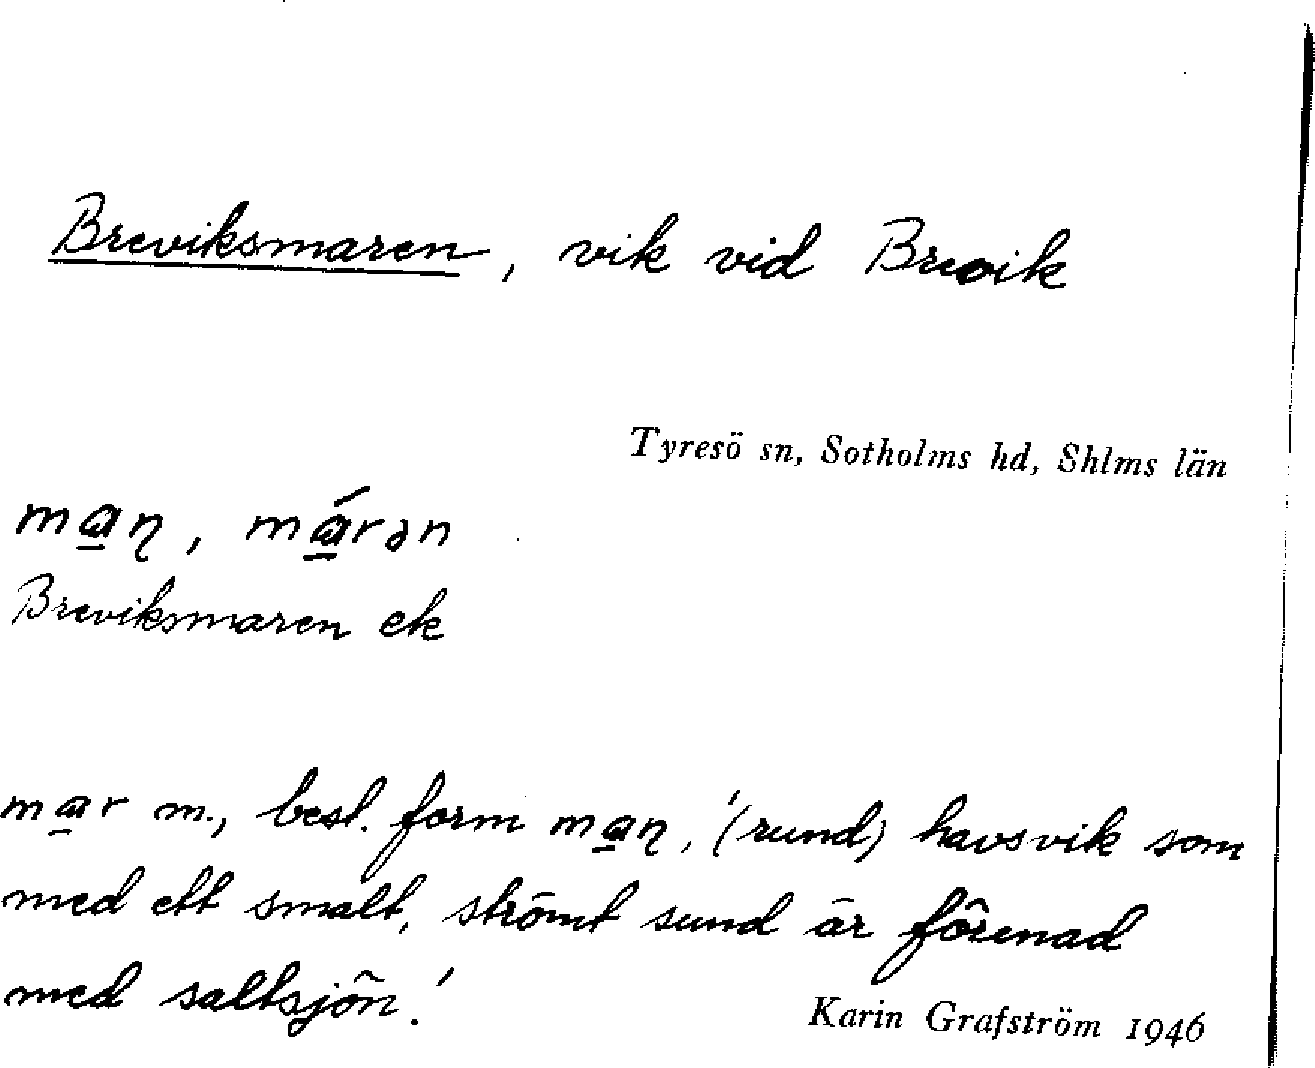 Breviksmaren, vik vid Brevik
Tyresö sn, Sotholms hd, Shlms län
mɑ̲ɳ, mɑ̲́rən
Breviksmaren ek
mɑ̲r m., best. form mɑ̲ɳ, '(rund) havsvik som
med ett smalt, strömt sund är förenad
med saltsjön.'
Karin Grafström 1946